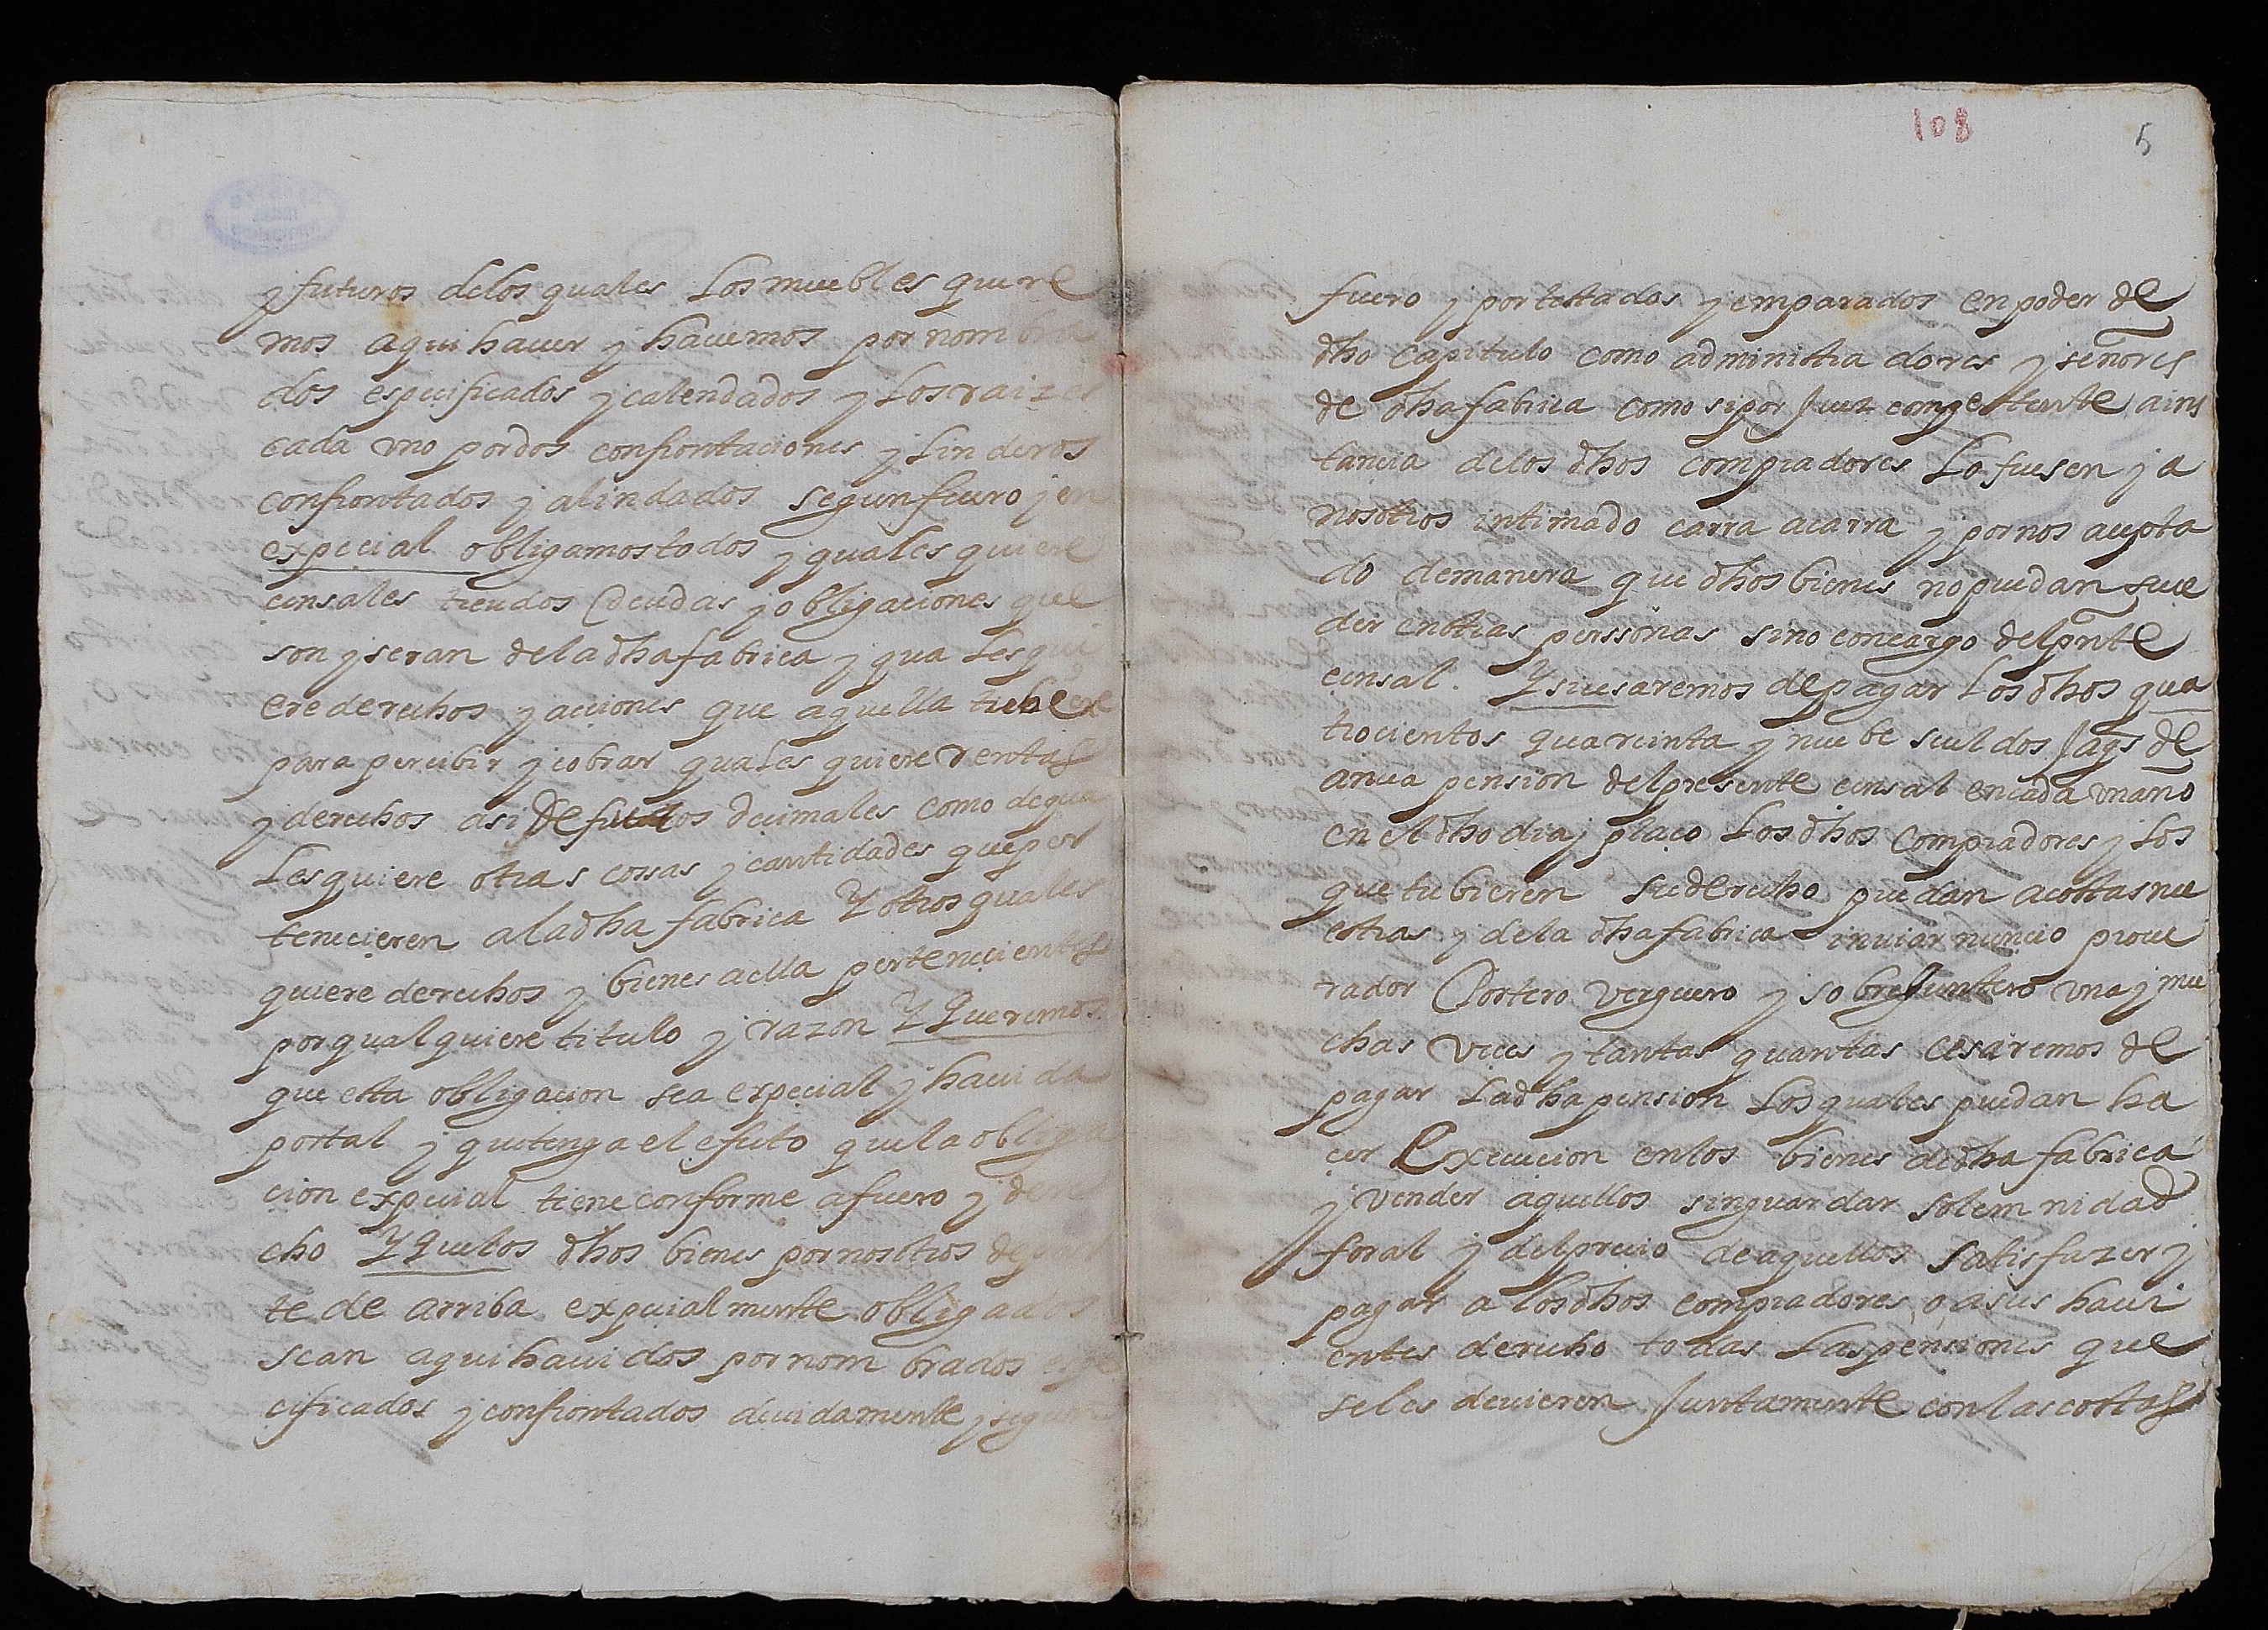 y futuros de los quales Los muebles quere
mos aqui haver y havemos por nombra
dos especificados y calendados y Los raizes
cada uno por dos confrontaciones y Linderos
confrontados y alindados segun fuero y en
expecial obligamos todos y quales quiere
censales treudos Deudas y obligaciones que
son y seran de la dha fabrica y qua Les qui
ere derechos y acciones que aquella tiene
para percibir y cobrar quales quiere rentas
y derechos asi De frutos decimales como de qua
Les quiere otras cossas y cantidades que per
tenecieren a la dha fabrica Y otros quales
quiere derechos y bienes a ella pertenecientes
por qual quiere titulo y razon Y Queremos
que esta obligacion sea expecial y havida
por tal y que tenga el efecto que la obliga
cion expecial tiene conforme a fuero y dere
cho Y Que los dhos bienes por nosotros de par
te de arriba expecialmente obligados
sean aqui havidos por nombrados espe
cificados y confrontados devidamente y segun
108
5
fuero y por testados y emparados en poder de
dho Capitulo como administradores y señores
de dha fabrica como si por Juez competente a ins
tancia de los dhos compradores Lo fuesen y a
nosotros intimado carra a carra y por nos acepta
do de manera que dhos bienes no puedan suce
der en otras perssonas sino con cargo del pnte
censal. Y si cesaremos de pagar Los dhos qua
trocientos quarcinta y nuebe sueldos Jaqs de
anua pension del presente censal en cada un año
en el dho dia y plaço Los dhos Compradores y Los
que tubieren su derecho puedan a costas nu
estras y de la dha fabrica inviar nuncio procu
rador Portero Verguero y sobreJuntero una y mu
chas veces y tantas quantas cesaremos de
pagar La dha pension Los quales puedan ha
cer Execucion en los bienes de dha fabrica
y vender aquellos sin guardar solemnidad
foral y del precio de aquellos satisfazer y
pagar a los dhos compradores o a sus havi
entes derecho todas Las penciones que
se les devieren Juntamente con las costas